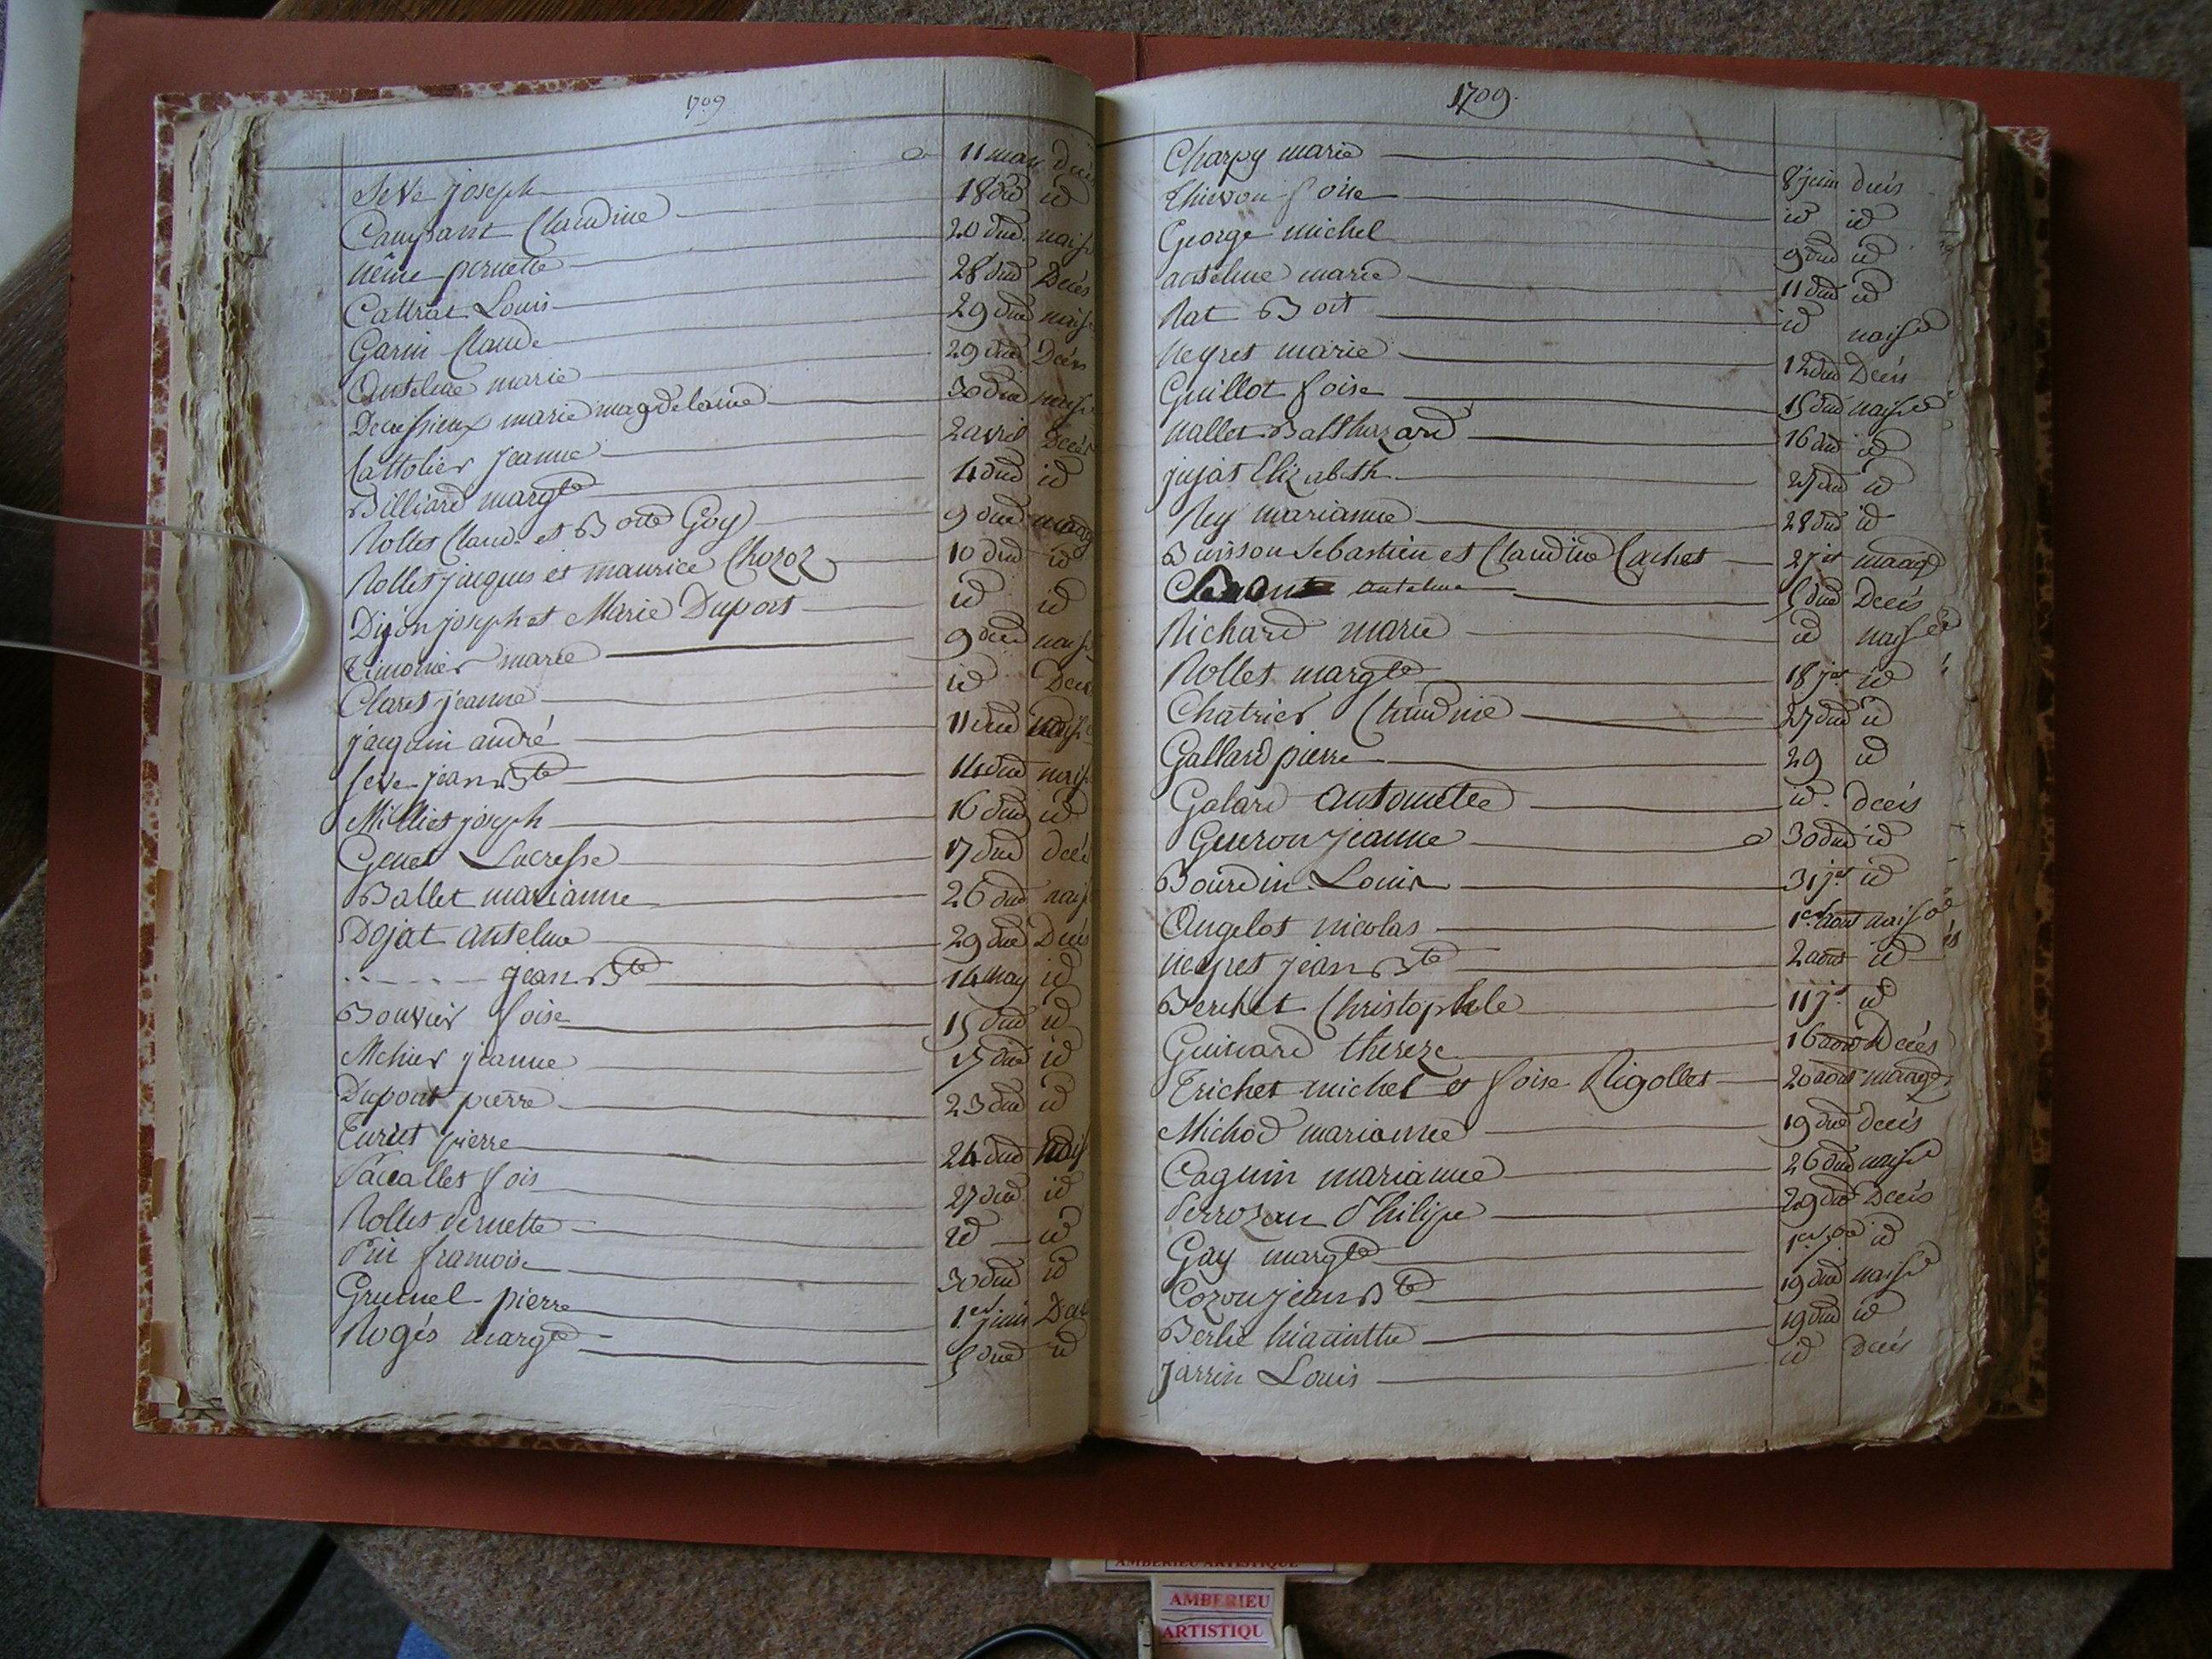 1709
Seve joseph 11 mars decès
Campant Claudine 18 dud id
même pernette 20 dud naiss
Cattrat Louis 28 dud Decès
Garin Claude 29 dud naiss
Anselme marie 29 dud Decès
marie magdelaine 30 dud naiss
jeanne 2 avril Decès
Billiard margte 4 dud id
Rollet Claude et Goy 9 dud
Rollet jacques et maurice Chozoz 10 dud id
Dijon joseph et Marie Duport id id
Timonier marie 9 dud naiss
Claret jeanne id Decès
jacquin andré 11 dud naiss
Seve jean Bte 14 dud naiss
Milliet joseph 16 dud id
Genet Lucresse 17 dud decès
Ballet marianne 26 dud naiss
Dojat anselme 29 dud Decès
- - - - - jean Bte 14 may id
Bouvier foise 15 dud id
jeanne dud id
Dupont pierre 23 dud id
pierre 24 dud naiss
Paccallet fois 27 dud id
Rollet Pernette id id
francoise 30 dud id
Grumel pierre 1er juin Decès
Rogés margte 5 dud id
1709.
Charpy marie 8 juin decès
Thievon foise id id
George michel 9 dud id
anselme marie 11 dud id
Rat id naissce
Neyret marie 12 dud Decès
Guillot foise 15 dud naissce
Nallet Balthazard 16 dud id
jujat Elizabeth dud id
Rey marianne 28 dud id
Buisson Sebastien et Claudine Cachet 2 jet
antelme 5 dud Decès
Richard marie id naissce
Rollet margte 18 jet id
Chatrier Claudine 27 dud id
Gallard pierre 29 id
Galard Antoinette id. decès
Gueron jeanne 30 dud id
Bourdin Louis 31 jet id
Angelot nicolas 1er aout naissce
Neyret jean Bte 2 aout id
Berchet Christophle 11 id
Guinard thereze 16 aout Decès
Trichet michel et foise Rigollet 20 aout
Michod marianne 19 dud decès
Caquin marianne 26 dud naissce
Perrozan Philipe 29 dud Decès
Gay margte 1er id
Cozon jean Bte 19 dud naissce
Berlie hiacinthe 19 dud id
Jarrin Louis id decès
AMBERIEU ARTISTIQUE
AMBERIEU
ARTISTIQU